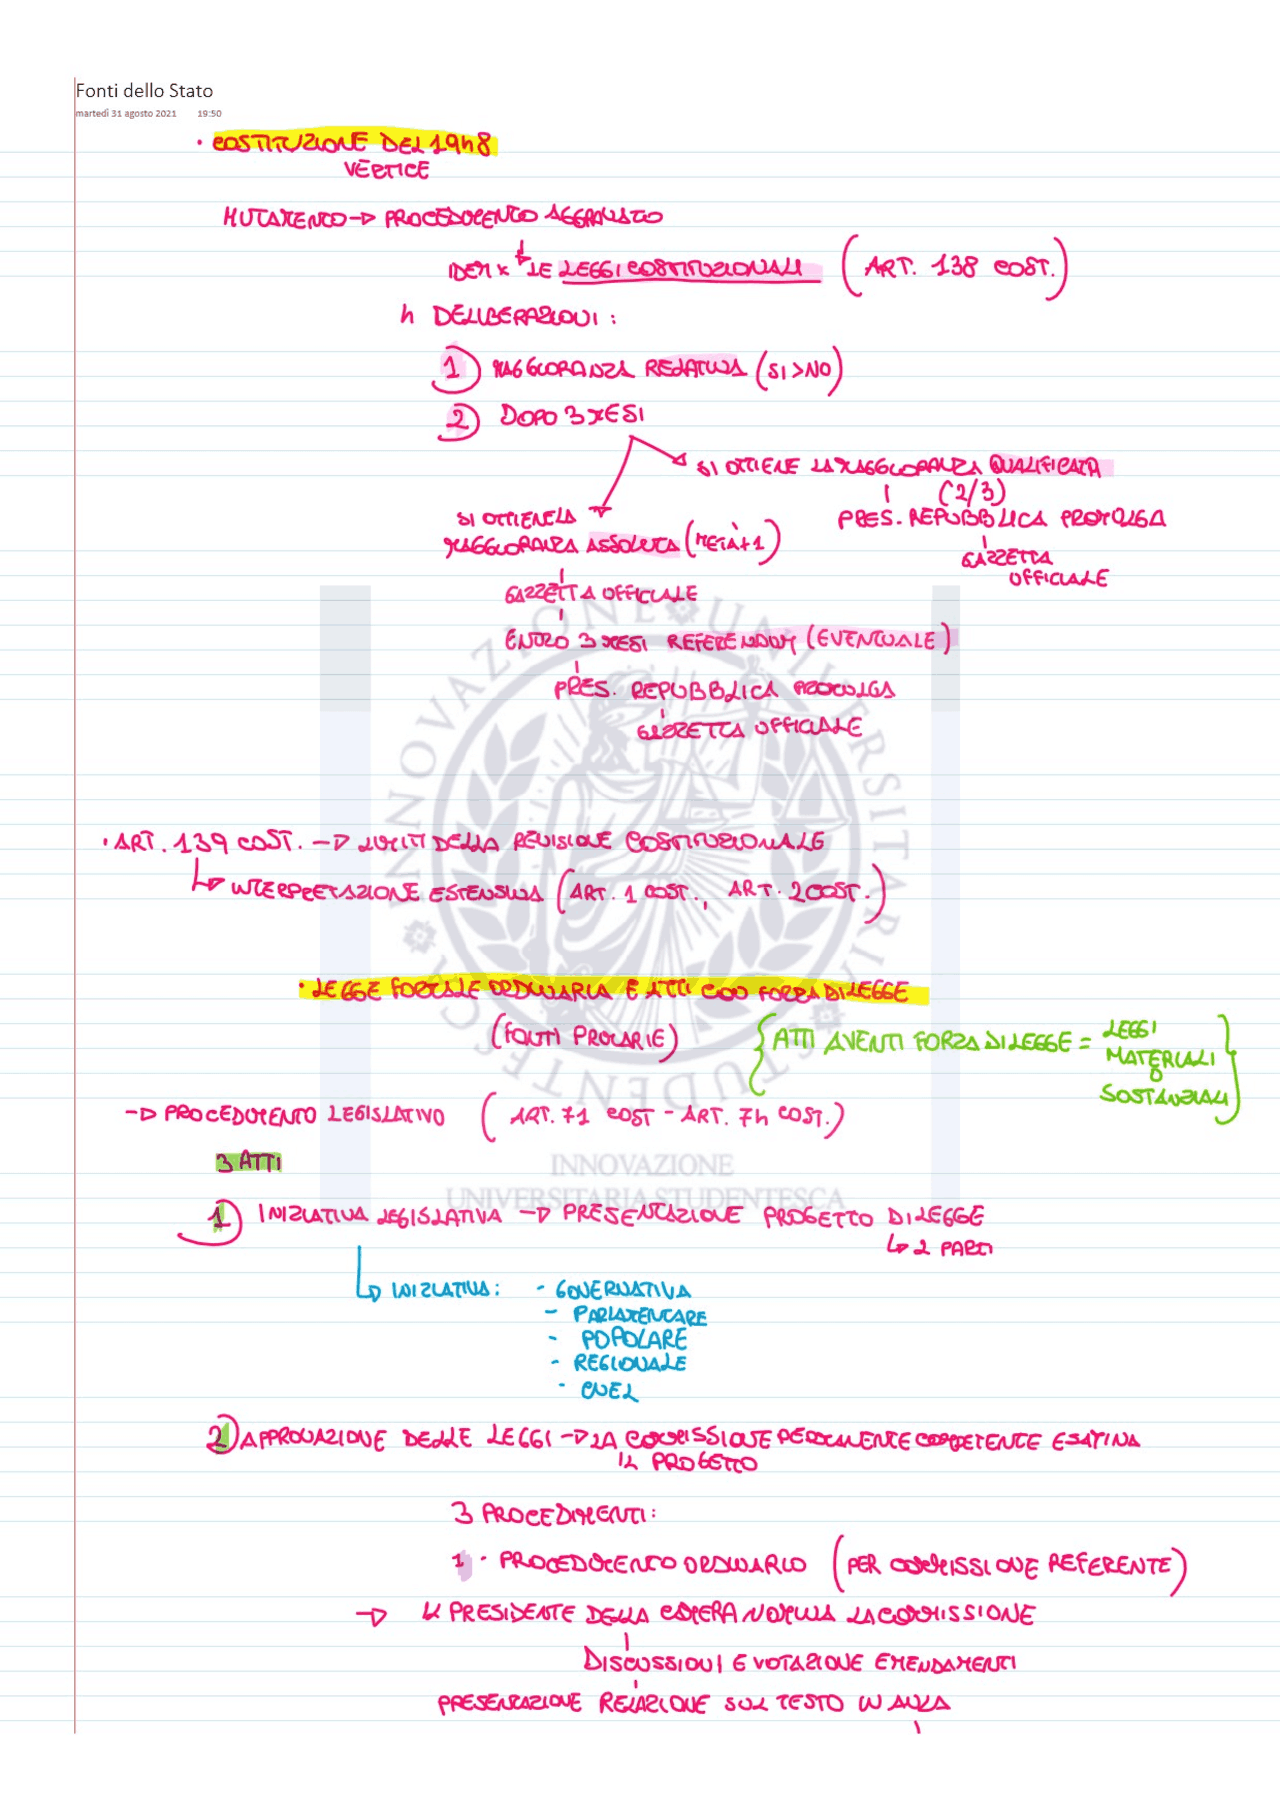 Fonti dello Stato
martedì 31 agosto 2021 19:50
• COSTITUZIONE DEL 1948
VERTICE
MUTAMENTO → PROCEDIMENTO AGGRAVATO
IDEM x LE LEGGI COSTITUZIONALI (ART. 138 COST.)
4 DELIBERAZIONI:
1) MAGGIORANZA RELATIVA (SI>NO)
2) DOPO 3 MESI
SI OTTIENE LA MAGGIORANZA QUALIFICATA
(2/3)
SI OTTIENE LA
PRES. REPUBBLICA PROMULGA
MAGGIORANZA ASSOLUTA (METÀ+1)
GAZZETTA
OFFICIALE
GAZZETTA OFFICIALE
ENTRO 3 MESI REFERENDUM (EVENTUALE)
PRES. REPUBBLICA PROMULGA
GAZZETTA OFFICIALE
• ART. 139 COST. → LIMITI DELLA REVISIONE COSTITUZIONALE
↳ INTERPRETAZIONE ESTENSIVA (ART. 1 COST., ART. 2 COST.)
• LEGGE FORMALE ORDINARIA E ATTI CON FORZA DI LEGGE
(FONTI PRIMARIE)
{ATTI AVENTI FORZA DI LEGGE = LEGGI
MATERIALI
O
SOSTANZIALI}
→ PROCEDIMENTO LEGISLATIVO (ART. 71 COST - ART. 74 COST.)
3 ATTI
INNOVAZIONE
UNIVERSITARIA STUDENTESCA
1) INIZIATIVA LEGISLATIVA → PRESENTAZIONE PROGETTO DI LEGGE
↳ 2 PARTI
↳ INIZIATIVA: - GOVERNATIVA
- PARLAMENTARE
- POPOLARE
- REGIONALE
- CNEL
2) APPROVAZIONE DELLE LEGGI → LA COMMISSIONE PERMANENTE COMPETENTE ESAMINA
IL PROGETTO
3 PROCEDIMENTI:
1 • PROCEDIMENTO ORDINARIO (PER COMMISSIONE REFERENTE)
→ IL PRESIDENTE DELLA CAMERA NOMINA LA COMMISSIONE
DISCUSSIONI E VOTAZIONE EMENDAMENTI
PRESENTAZIONE RELAZIONE SUL TESTO IN AULA